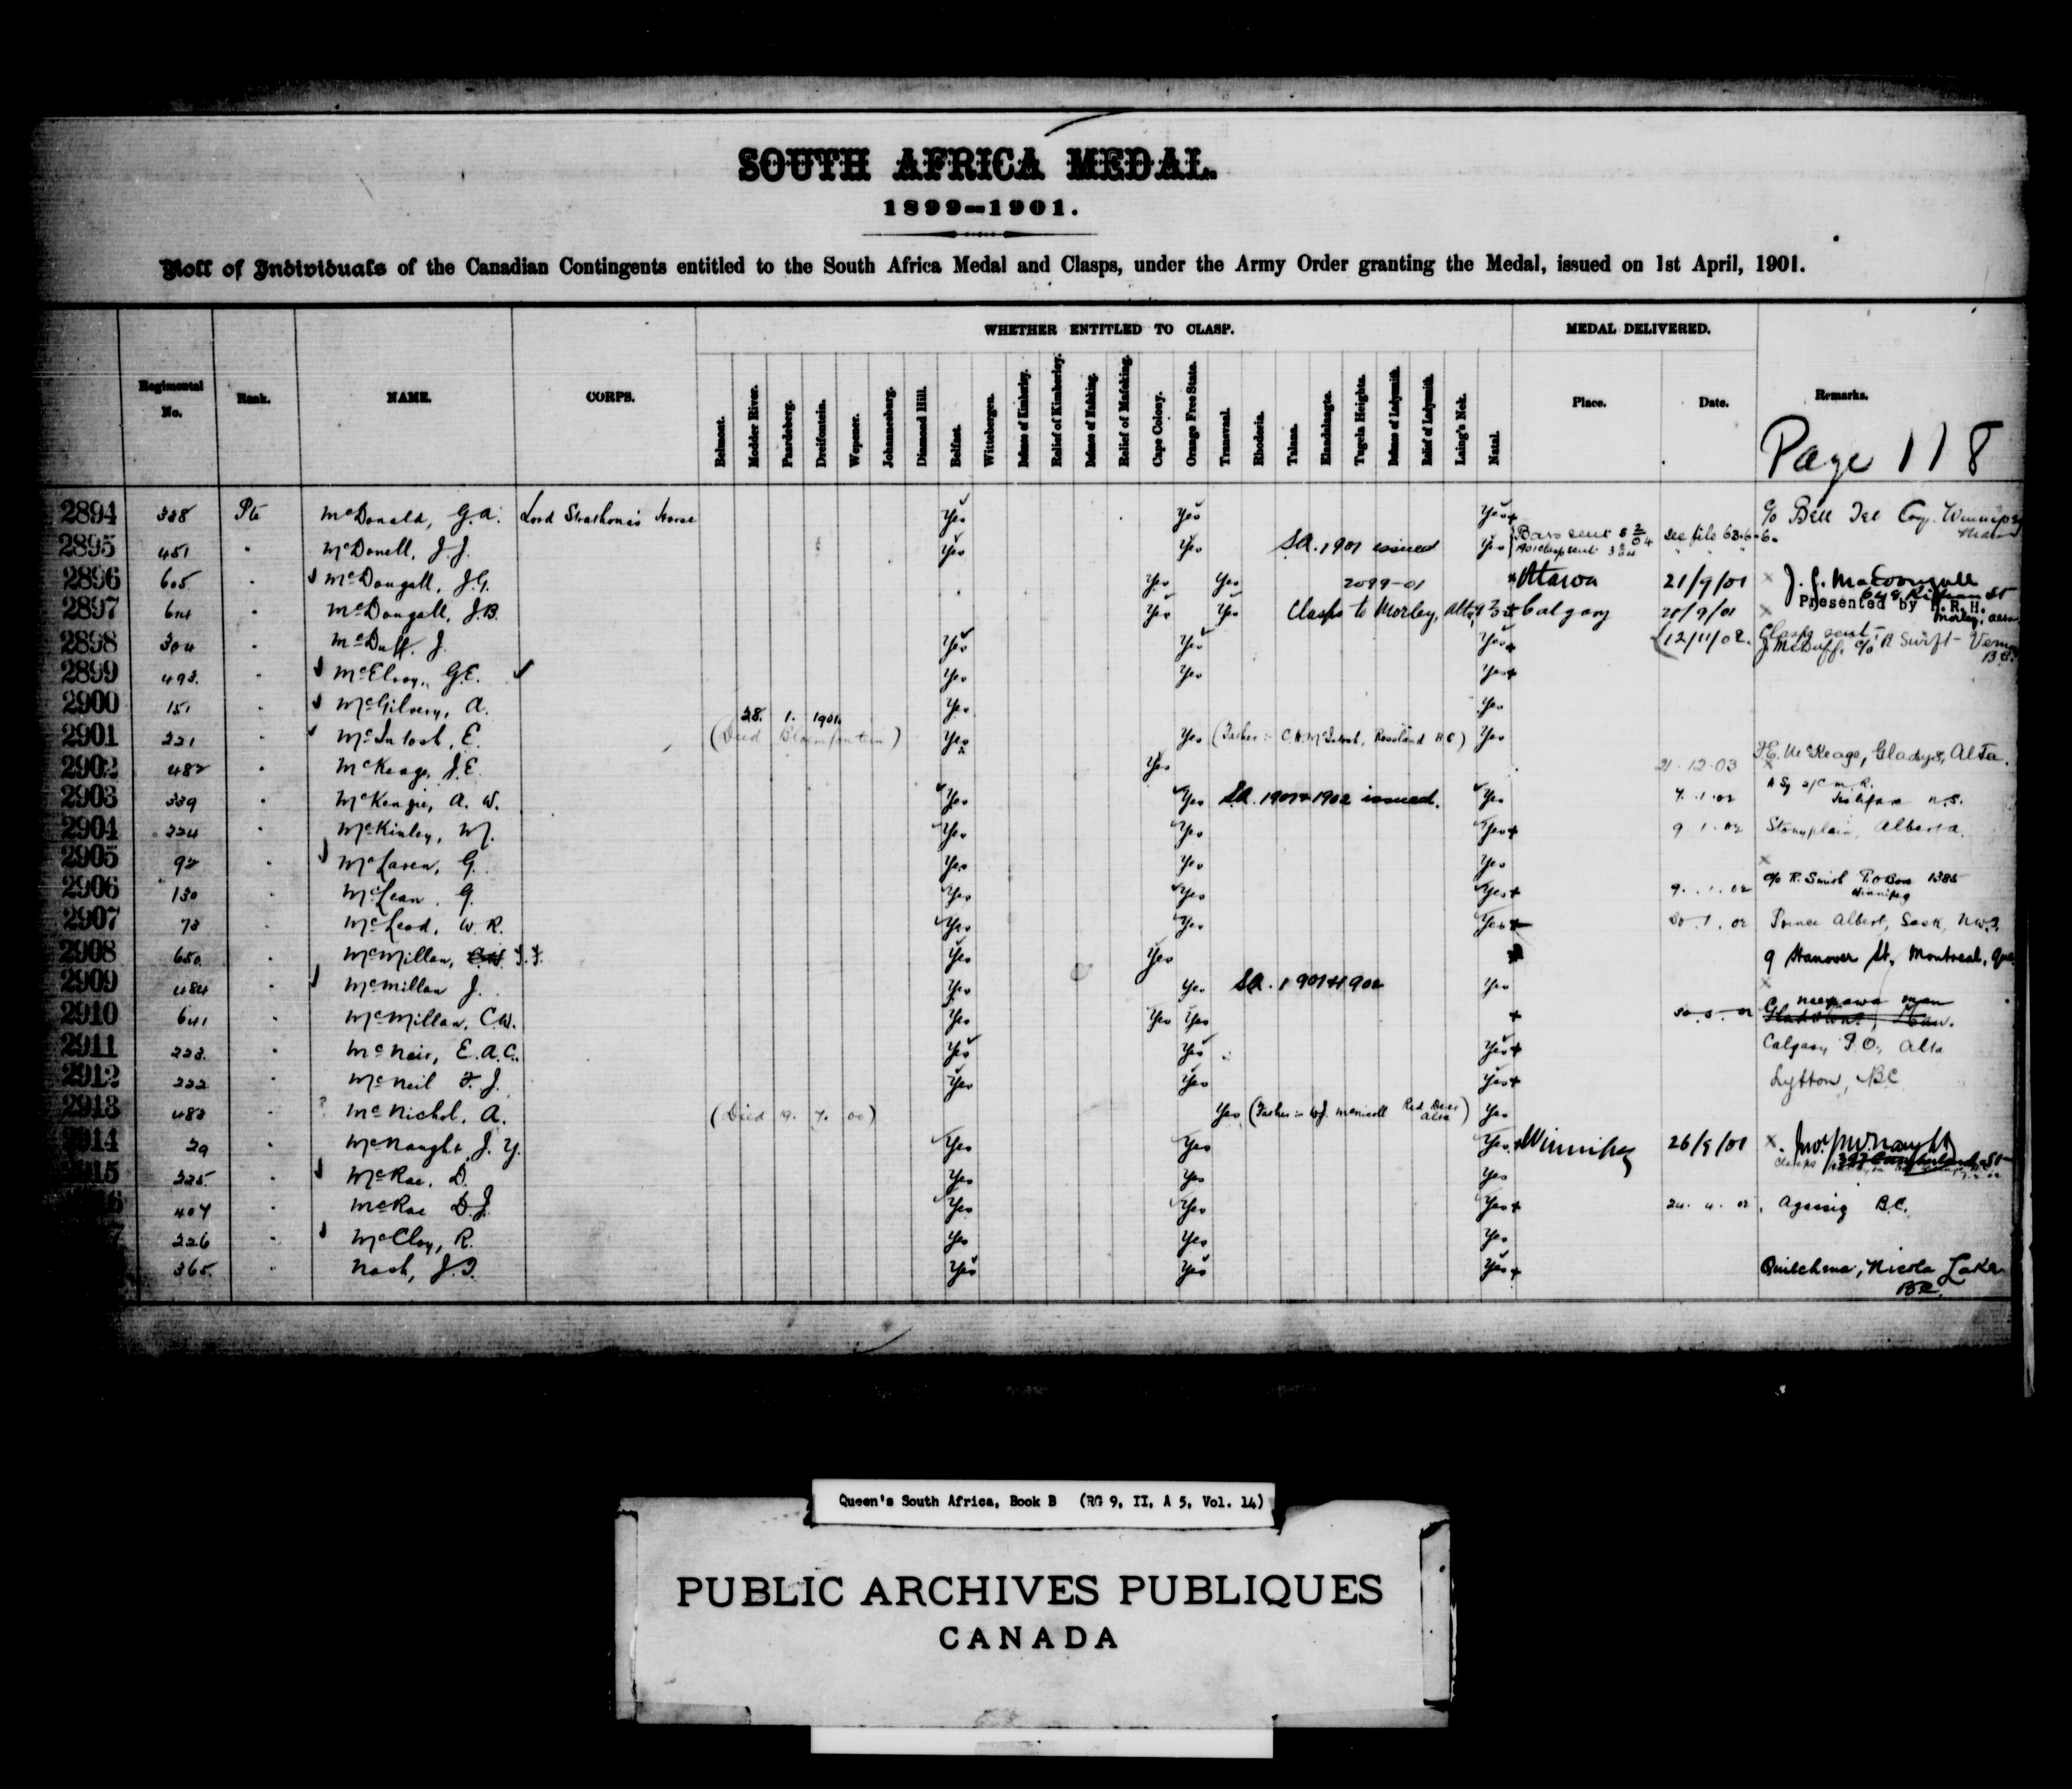 SOUTH AFRICA MEDAL.
1899--1901.
Roll of Individuals of the Canadian Contingents entitled to the South Africa Medal and Clasps, under the Army Order granting the Medal, issued on 1st April, 1901.
Regimental No. Rank. NAME. CORPS. WHETHER ENTITLED TO CLASP. MEDAL DELIVERED. Remarks.
Belmont. Modder River. Paardeberg. Dreifontein. Wepener. Johannesburg. Diamond Hill. Belfast. Wittebergen. Defense of Kimberley. Relief of Kimberley. Defense of Mafeking. Relief of Mafeking. Cape Colony. Orange Free State. Transvaal. Rhodesia. Talana. Elandslaagte. Tugela Heights. Defense of Ladysmith. Relief of Ladysmith. Laing's Nek. Natal. Place. Date.
Page 118
2894 328 Pte McDonald, G.A. Lord Strathcona's Horse Yes Yes Yes+ c/o Bell Tel Coy. Winnipeg
2895 451 " McDonell, J.J. Yes Yes SA. 1901 issued Yes Bars sent see file 63-6-6
2896 605 " McDougall, J.G. Yes Yes 2099-01 Ottawa 21/9/01 x J. G. MacDougall
2897 641 " McDougall, J.B. Yes Yes Clasps to Morley, Alta Calgary 28/9/01 x Presented by H.R.H. Morley, Alta
2898 304 " McDuff, J. Yes Yes Yes+ 12/11/02. Clasps sent J McDuff, c/o R Swift - Vernon B.C.
2899 493. " McElroy, G.E. Yes Yes Yes+
2900 151 " McGilvery, A. Yes Yes
2901 221 " McIntosh, E. (Died 28. 1. 1901. Bloemfontein) Yes Yes (Father :- C.H. McIntosh, Rossland B.C) Yes
2902 482 " McKeage, J.E. Yes 21.12.03 J.E. McKeage, Gladys, Alta.
2903 339 " McKenzie, A. W. Yes Yes SA. 1901 & 1902 issued. Yes 7.1.02 Halifax N.S.
2904 224 " McKinley, M. Yes Yes Yes+ 9.1.02 Stonyplain, Alberta.
2905 92 " McLaren, G. Yes Yes Yes x
2906 130 " McLean, G. Yes Yes Yes+ 9.1.02 c/o R. Smith P.O Box 1385 Winnipeg
2907 73 " McLeod, W. R. Yes Yes Yes+ 30.1.02 Prince Albert, Sask, N.W.T.
2908 650. " McMillan, J.F. Yes Yes 9 Hanover St, Montreal, Que
2909 484 " McMillan J. Yes Yes SA. 1901 & 1902 Yes x
2910 641 " McMillan, C.W. Yes Yes Yes + 30.5.02 Neepawa Man Gladstone, Man.
2911 223. " McNair, E.A.C. Yes Yes Yes+ Calgary P.O., Alta
2912 222 " McNeil F. J. Yes Yes Yes+ Lytton, BC
2913 483 " McNichol, A. (Died 9. 7. 00) Yes (Father :- W.J. McNicoll Red Deer Alta) Yes
2914 29 " McNaught, J. Y. Yes Yes Yes Winnipeg 26/9/01 x Jno Y McNaught
15 225. " McRae, D. Yes Yes Yes
407 " McRae D.J. Yes Yes Yes+ 24.4.02. Agassiz B.C.
226 " McCloy, R. Yes Yes Yes
365. " Nash, J.T. Yes Yes Yes+ Quilchena, Nicola Lake BC.
Queen's South Africa, Book B (RG 9, II, A 5, Vol. 14)
PUBLIC ARCHIVES PUBLIQUES
CANADA